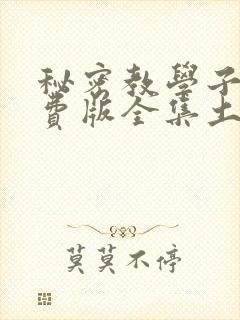 秘密教學子
費版全集土
莫莫不停